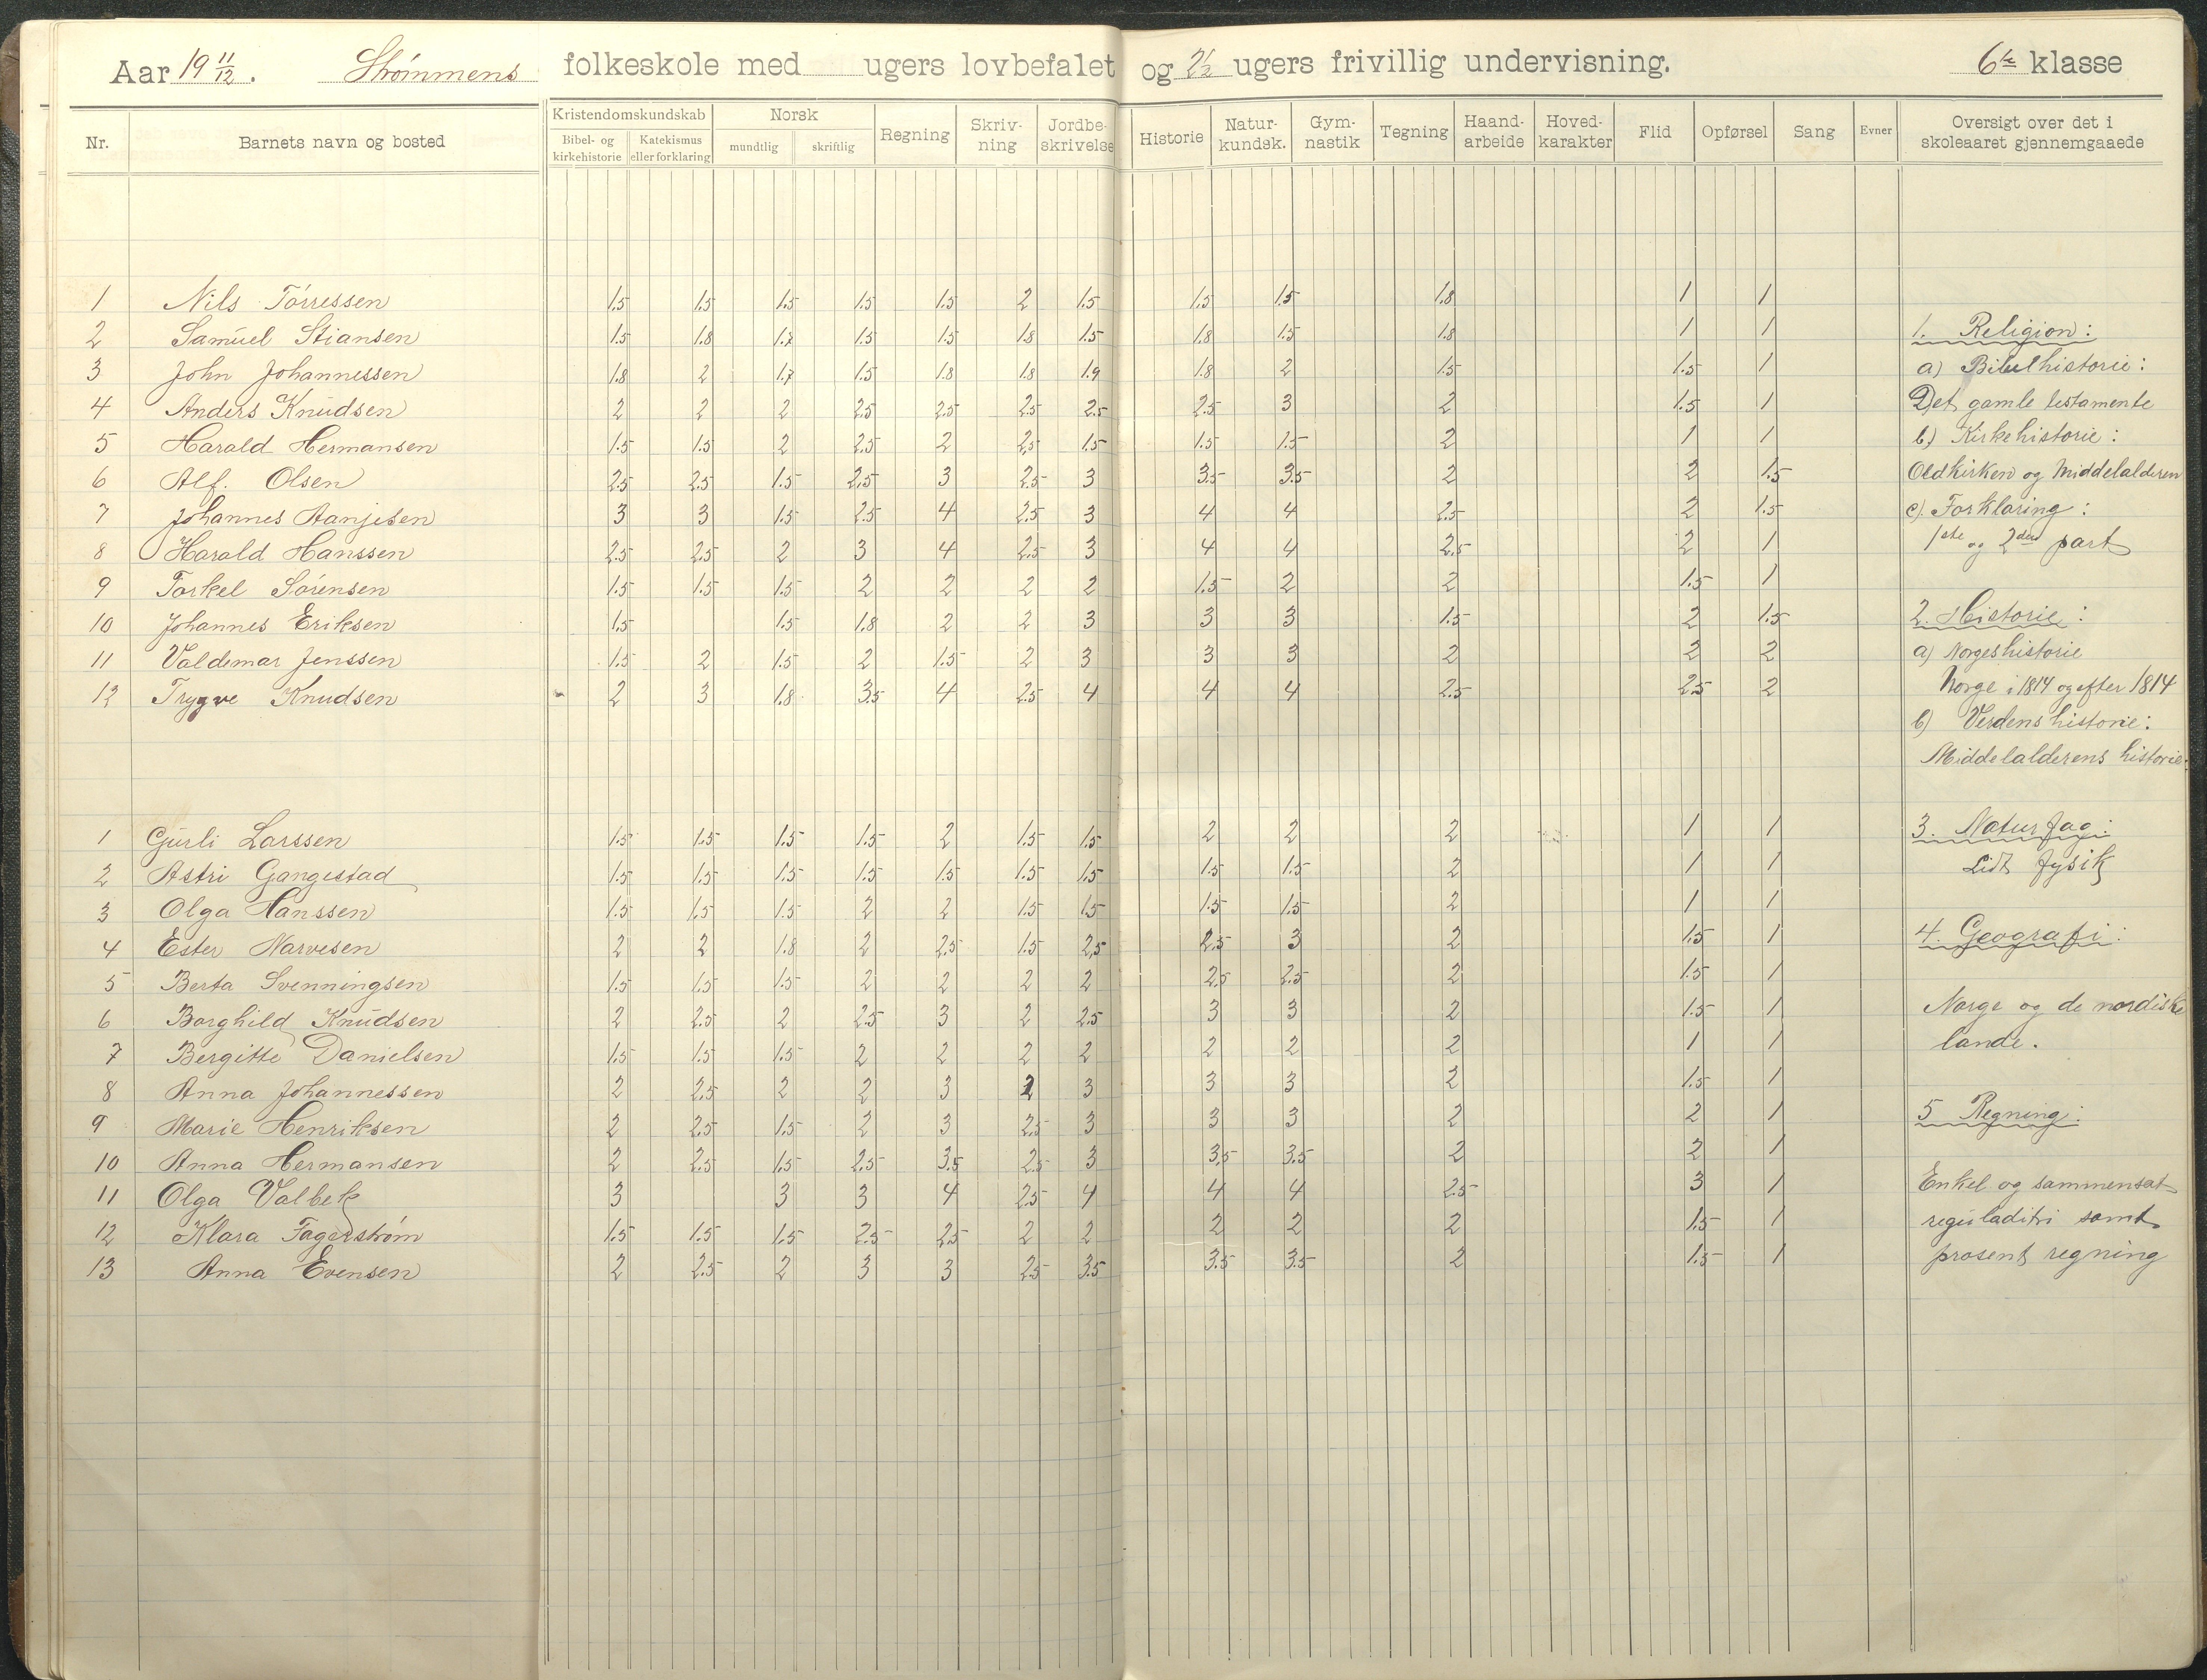 Aar 19 11/12. Strømmens folkeskole med ugers lovbefalet og 2 1/2 ugers frivillig undervisning. 6te klasse
Nr. Barnets navn og bosted Kristendomskundskab Bibel- og kirkehistorie Katekismus eller forklaring Norsk mundtlig skriftlig Regning Skriv-ning Jordbe-skrivelse Historie Natur-kundsk. Gym-nastik Tegning Haand-arbeide Hoved-karakter Flid Opførsel Sang Evner Oversigt over det i skoleaaret gjennemgaaede
1 Nils Tørressen 1.5 1.5 1.5 1.5 1.5 2 1.5 1.5 1.5 1.8 1 1
2 Samuel Stiansen 1.5 1.8 1.7 1.5 1.5 1.8 1.5 1.8 1.5 1.8 1 1
3 John Johannessen 1.8 2 1.7 1.5 1.8 1.8 1.9 1.8 2 1.5 1.5 1
4 Anders Knudsen 2 2 2 2.5 2.5 2.5 2.5 2.5 3 2 1.5 1
5 Harald Hermansen 1.5 1.5 2 2.5 2 2.5 1.5 1.5 1.5 2 1 1
6 Alf. Olsen 2.5 2.5 1.5 2.5 3 2.5 3 3.5 3.5 2 2 1.5
7 Johannes Aanjesen 3 3 1.5 2.5 4 2.5 3 4 4 2.5 2 1.5
8 Harald Hanssen 2.5 2.5 2 3 4 2.5 3 4 4 2.5 2 1
9 Torkel Sørensen 1.5 1.5 1.5 2 2 2 2 1.5 2 2 1.5 1
10 Johannes Eriksen 1.5 1.5 1.8 2 2 3 3 3 1.5 2 1.5
11 Valdemar Jenssen 1.5 2 1.5 2 1.5 2 3 3 3 2 2 2
12 Trygve Knudsen 2 3 1.8 3.5 4 2.5 4 4 4 2.5 2.5 2
1 Gurli Larssen 1.5 1.5 1.5 1.5 2 1.5 1.5 2 2 2 1 1
2 Astri Gangestad 1.5 1.5 1.5 1.5 1.5 1.5 1.5 1.5 1.5 2 1 1
3 Olga Hanssen 1.5 1.5 1.5 2 2 1.5 1.5 1.5 1.5 2 1 1
4 Ester Narvesen 2 2 1.8 2 2.5 1.5 2.5 2.5 3 2 1.5 1
5 Berta Svenningsen 1.5 1.5 1.5 2 2 2 2 2.5 2.5 2 1.5 1
6 Borghild Knudsen 2 2.5 2 2.5 3 2 2.5 3 3 2 1.5 1
7 Bergitte Danielsen 1.5 1.5 1.5 2 2 2 2 2 2 2 1 1
8 Anna Johannessen 2 2.5 2 2 3 2 3 3 3 2 1.5 1
9 Marie Henriksen 2 2.5 1.5 2 3 2.5 3 3 3 2 2 1
10 Anna Hermansen 2 2.5 1.5 2.5 3.5 2.5 3 3.5 3.5 2 2 1
11 Olga Valbek 3 3 3 4 2.5 4 4 4 2.5 3 1
12 Klara Fagerstrøm 1.5 1.5 1.5 2.5 2.5 2 2 2 2 2 1.5 1
13 Anna Evensen 2 2.5 2 3 3 2.5 3.5 3.5 3.5 2 1.5 1
1. Religion:
a) Bibelhistorie:
Det gamle testamente
b) Kirkehistorie:
Oldkirken og Middelalderen
c) Forklaring:
1ste og 2den part
2. Historie:
a) Norgeshistorie
Norge i 1814 og efter 1814
b) Verdenshistorie:
Middelalderens historie.
3. Naturfag:
Lidt fysik
4. Geografi:
Norge og de nordiske
lande.
5 Regning:
Enkel og sammensat
reguladitri samt
prosent regning